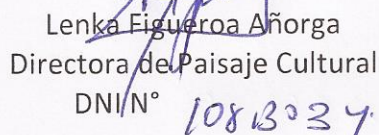 Lenka Figueroa Añorga
Directora de Paisaje Cultural
DNI N° 10813034.